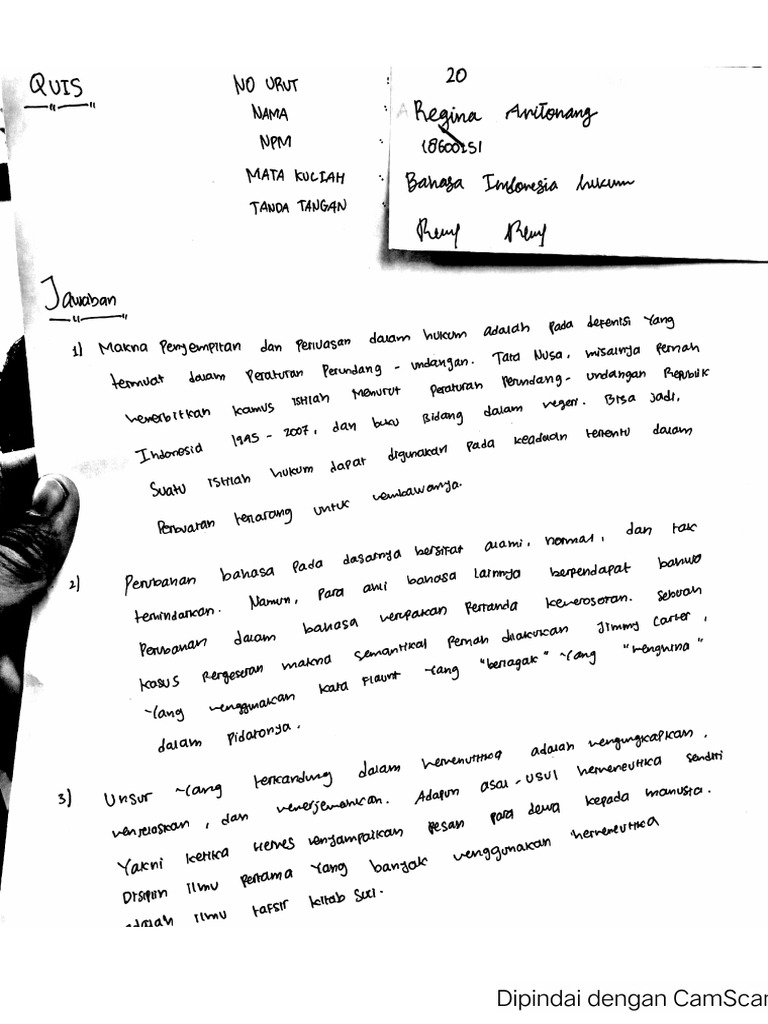 QUIS
NO URUT : 20
NAMA : Regina Aritonang
NPM : 18600251
MATA KULIAH : Bahasa Indonesia hukum
TANDA TANGAN :
Jawaban
1) Makna Penyempitan dan Perluasan dalam hukum adalah pada defenisi yang
termuat dalam Peraturan Perundang - undangan. Tata Nusa, misalnya Pernah
menerbitkan kamus istilah Menurut Peraturan Perundang - undangan Republik
Indonesia 1945 - 2007, dan buku Bidang dalam negeri. Bisa jadi,
Suatu istilah hukum dapat digunakan pada keadaan tertentu dalam
Perbuatan terlarang untuk membawanya.
2) Perubahan bahasa pada dasarnya bersifat alami, normal, dan tak
terhindarkan. Namun, para ahli bahasa lainnya berpendapat bahwa
Perubahan dalam bahasa merupakan Pertanda kemerosotan. Sebuah
kasus Pergeseran makna semantikal Pernah dilakukan Jimmy Carter,
Yang menggunakan kata Flaunt Yang "berlagak" Yang "menghina"
dalam Pidatonya.
3) Unsur Yang terkandung dalam hermenutika adalah mengungkapkan,
menjelaskan, dan menerjemahkan. Adapun asal - usul hermeneutika sendiri
Yakni ketika Hermes menyampaikan Pesan para dewa kepada manusia.
Disiplin Ilmu Pertama Yang banyak menggunakan hermeneutika
adalah Ilmu tafsir kitab Suci.
Dipindai dengan CamScan